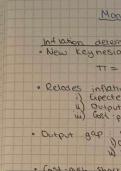 Mon
Inflation determ
• New Keynesia
π =
• Relates inflati
i) Expecte
ii) Output
iii) Cost-p
• Output gap
i)
ii)